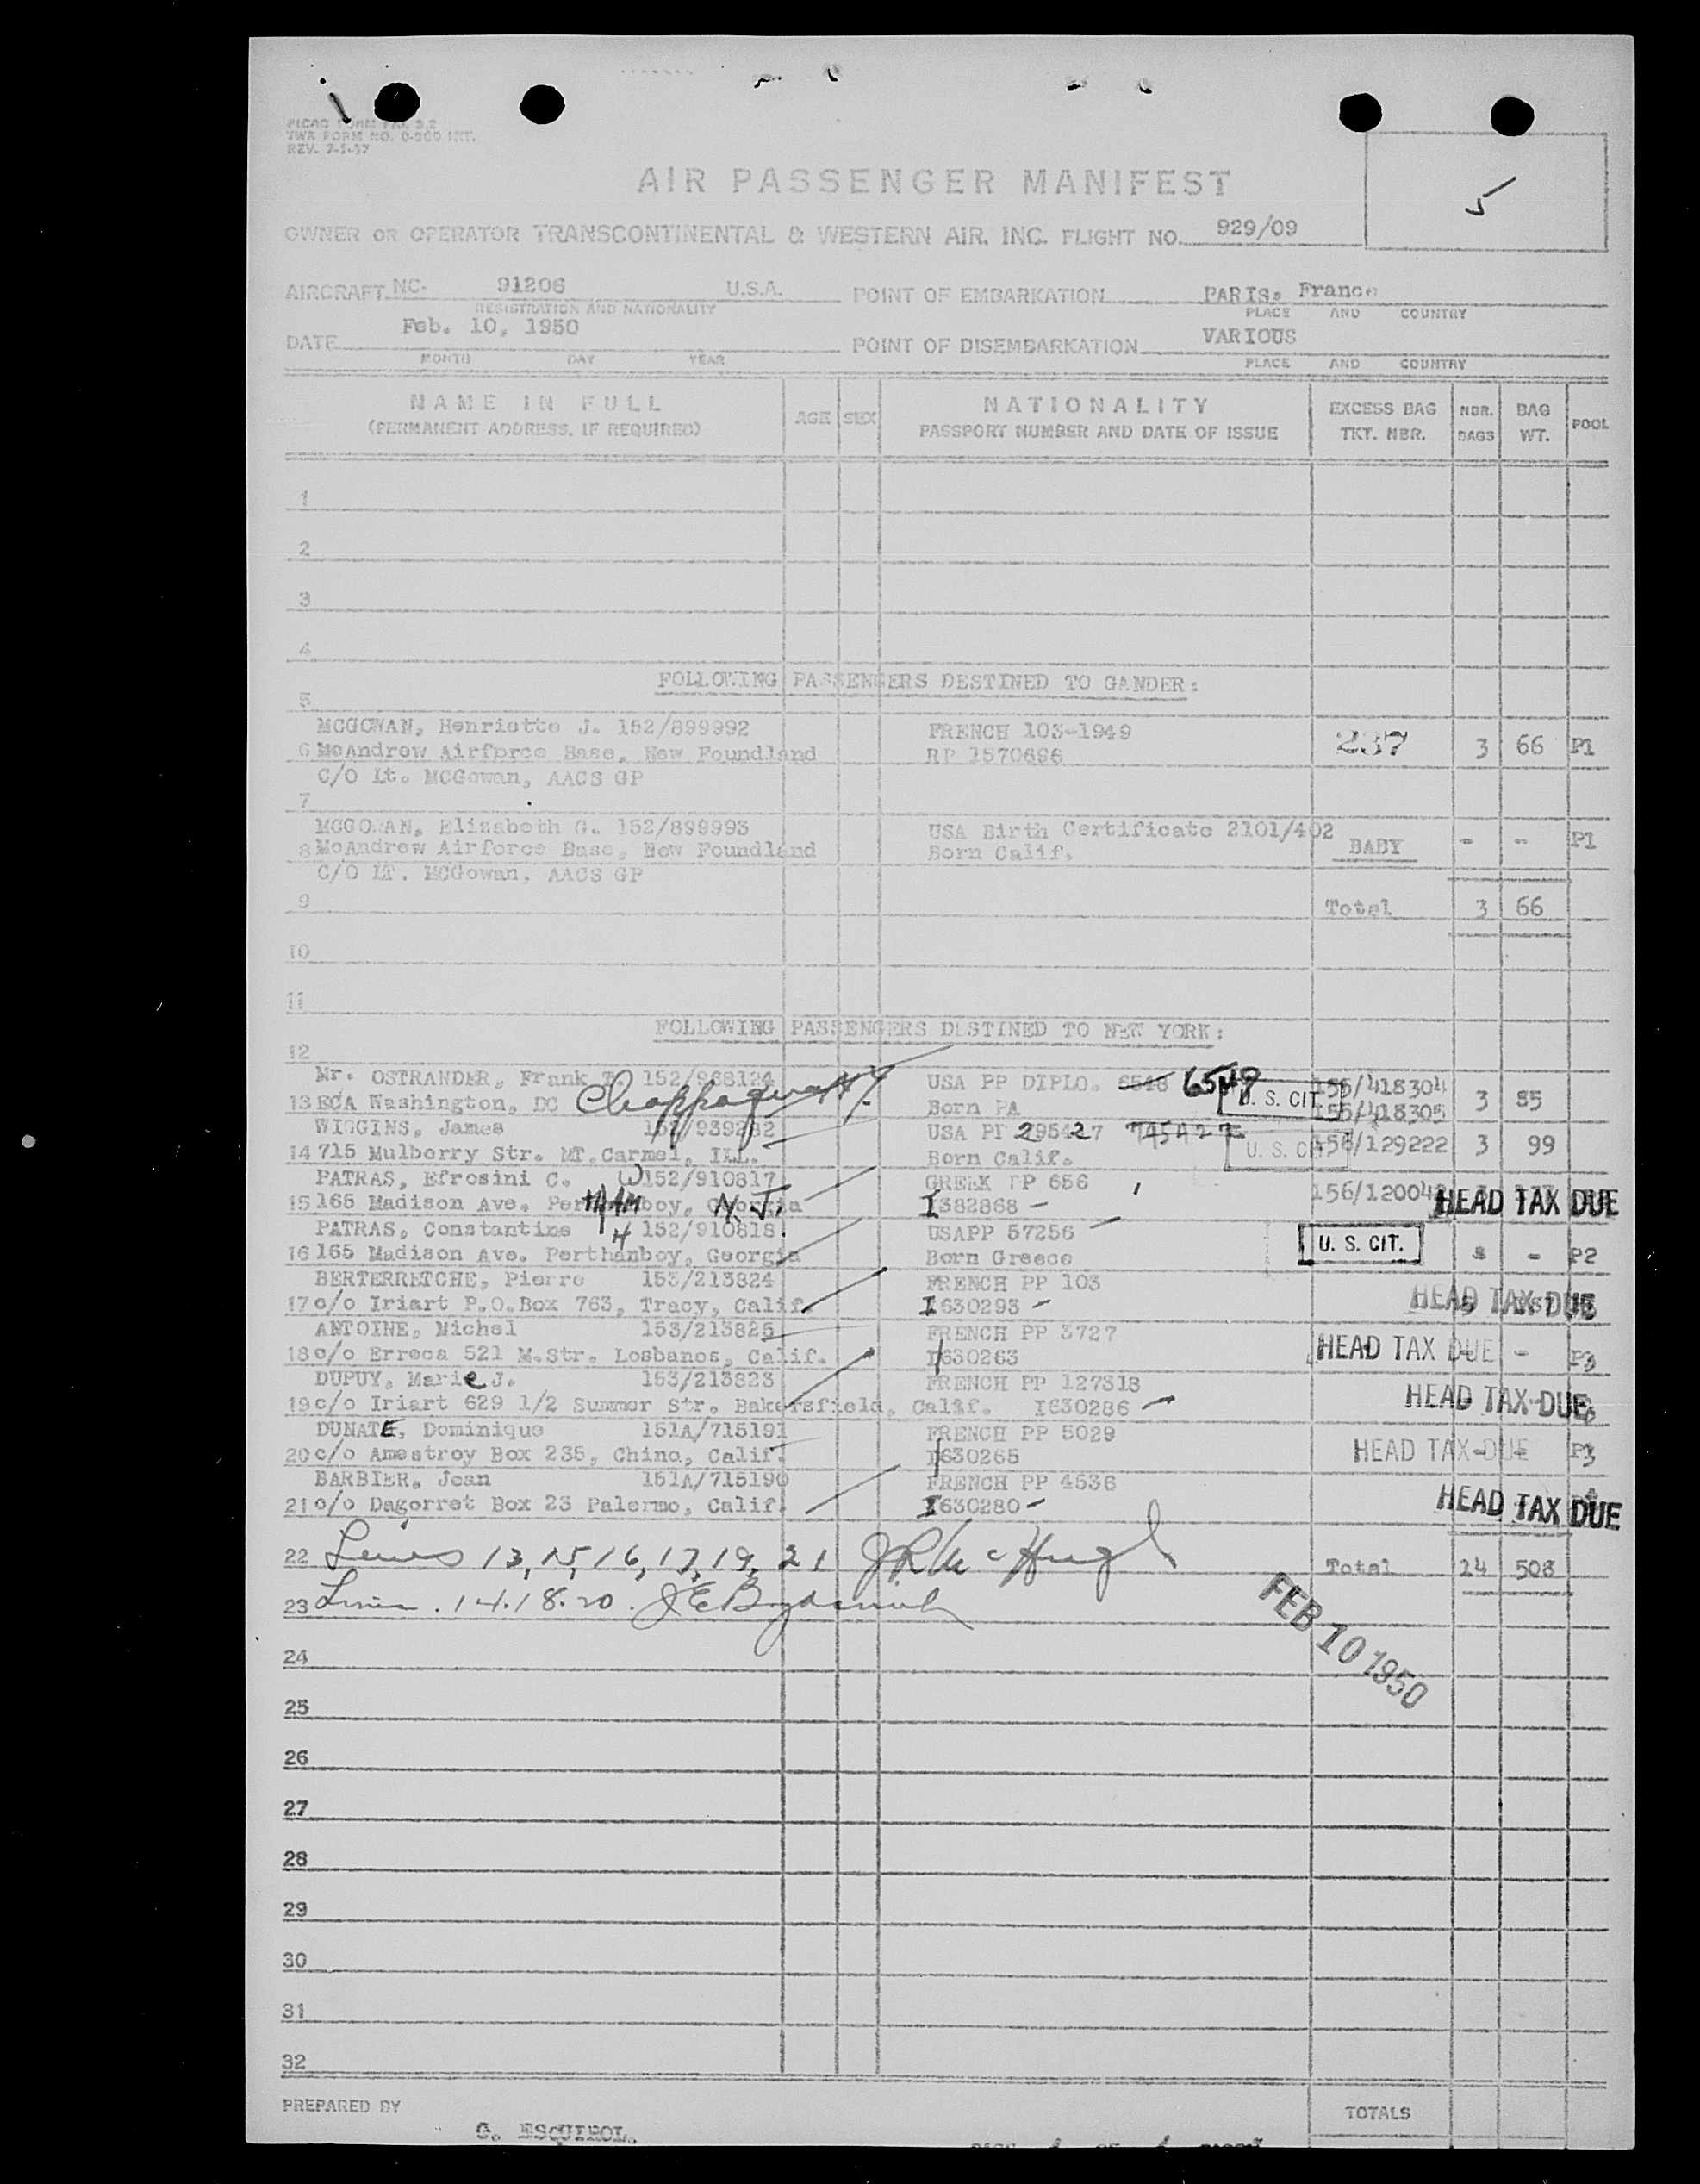 PICAO FORM NO. 3.2
TWA FORM NO. 0-360 INT.
REV. 7-1-47
5
AIR PASSENGER MANIFEST
OWNER OR OPERATOR TRANSCONTINENTAL & WESTERN AIR. INC. FLIGHT NO. 929/09
AIRCRAFT NC- 91206 U.S.A. POINT OF EMBARKATION PARIS, France
REGISTRATION AND NATIONALITY PLACE AND COUNTRY
DATE Feb. 10, 1950 POINT OF DISEMBARKATION VARIOUS
MONTH DAY YEAR PLACE AND COUNTRY
NAME IN FULL AGE SEX NATIONALITY EXCESS BAG NBR. BAG POOL
(PERMANENT ADDRESS, IF REQUIRED) PASSPORT NUMBER AND DATE OF ISSUE TKT. NBR. BAGS WT.
1
2
3
4
FOLLOWING PASSENGERS DESTINED TO GANDER:
5
MCGOWAN, Henriette J. 152/899992 FRENCH 103-1949
6 McAndrew Airforce Base, New Foundland RP 1570696 237 3 66 P1
C/O Lt. MCGowan, AACS GP
7
MCGOWAN, Elizabeth G. 152/899993 USA Birth Certificate 2101/402
8 McAndrew Airforce Base, New Foundland Born Calif, BABY - - P1
C/O LT. MCGowan, AACS GP
9 Total 3 66
10
11
FOLLOWING PASSENGERS DESTINED TO NEW YORK:
12
Mr. OSTRANDER, Frank T. 152/968124 USA PP DIPLO. 6548 6549 156/418304
13 ECA Washington, DC Chappaqua NY Born PA U. S. CIT. 156/418305 3 85
WIGGINS, James 152/939232 USA PP 295427 745427
14 715 Mulberry Str. MT.Carmel, ILL. Born Calif. U. S. CIT. 156/129222 3 99
PATRAS, Efrosini C. W 152/910817 GREEK PP 656
15 165 Madison Ave. Perthamboy, Georgia N.J. I 382868 156/120042 HEAD TAX DUE
PATRAS, Constantine H 152/910818 USAPP 57256
16 165 Madison Ave. Perthanboy, Georgia Born Greece U. S. CIT. - P2
BERTERRETCHE, Pierre 153/213824 FRENCH PP 103
17 c/o Iriart P.O.Box 763, Tracy, Calif. I 630293 HEAD TAX DUE
ANTOINE, Michel 153/213825 FRENCH PP 3727
18 c/o Erreca 521 M.Str. Losbanos, Calif. I630263 HEAD TAX DUE - P3
DUPUY, Marie J. 153/213823 FRENCH PP 127318
19 c/o Iriart 629 1/2 Summer Str. Bakersfield, Calif. I630286 HEAD TAX DUE
DUNATE, Dominique 151A/715191 FRENCH PP 5029
20 c/o Amestroy Box 235, Chino, Calif. I630265 HEAD TAX DUE P3
BARBIER, Jean 151A/715190 FRENCH PP 4536
21 c/o Dagorret Box 23 Palermo, Calif. I630280 HEAD TAX DUE
22 Lines 13, 15, 16, 17, 19, 21 J R McHugh Total 14 508
23 Lines . 14. 18. 20.
FEB 10 1950
24
25
26
27
28
29
30
31
32
PREPARED BY TOTALS
G. ESQUIROL.